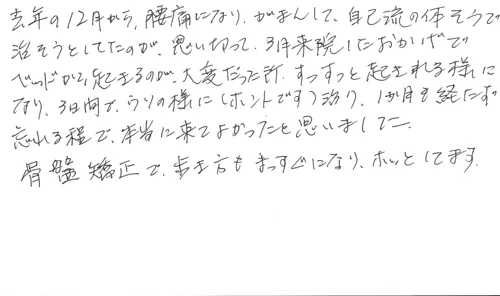 去年の12月から、腰痛になり、がまんして、自己流の体そうで
治そうとしてたのが、思い切って、3件来院したおかげで
ベッドから起きるのが、大変だった所、すっすっと起きれる様に
なり、3日間で、ウソの様に(ホントです)治り、1か月も経たず
忘れる程で、本当に来てよかったと思いました。
骨盤矯正で、歩き方もまっすぐになり、ホッとしてます。